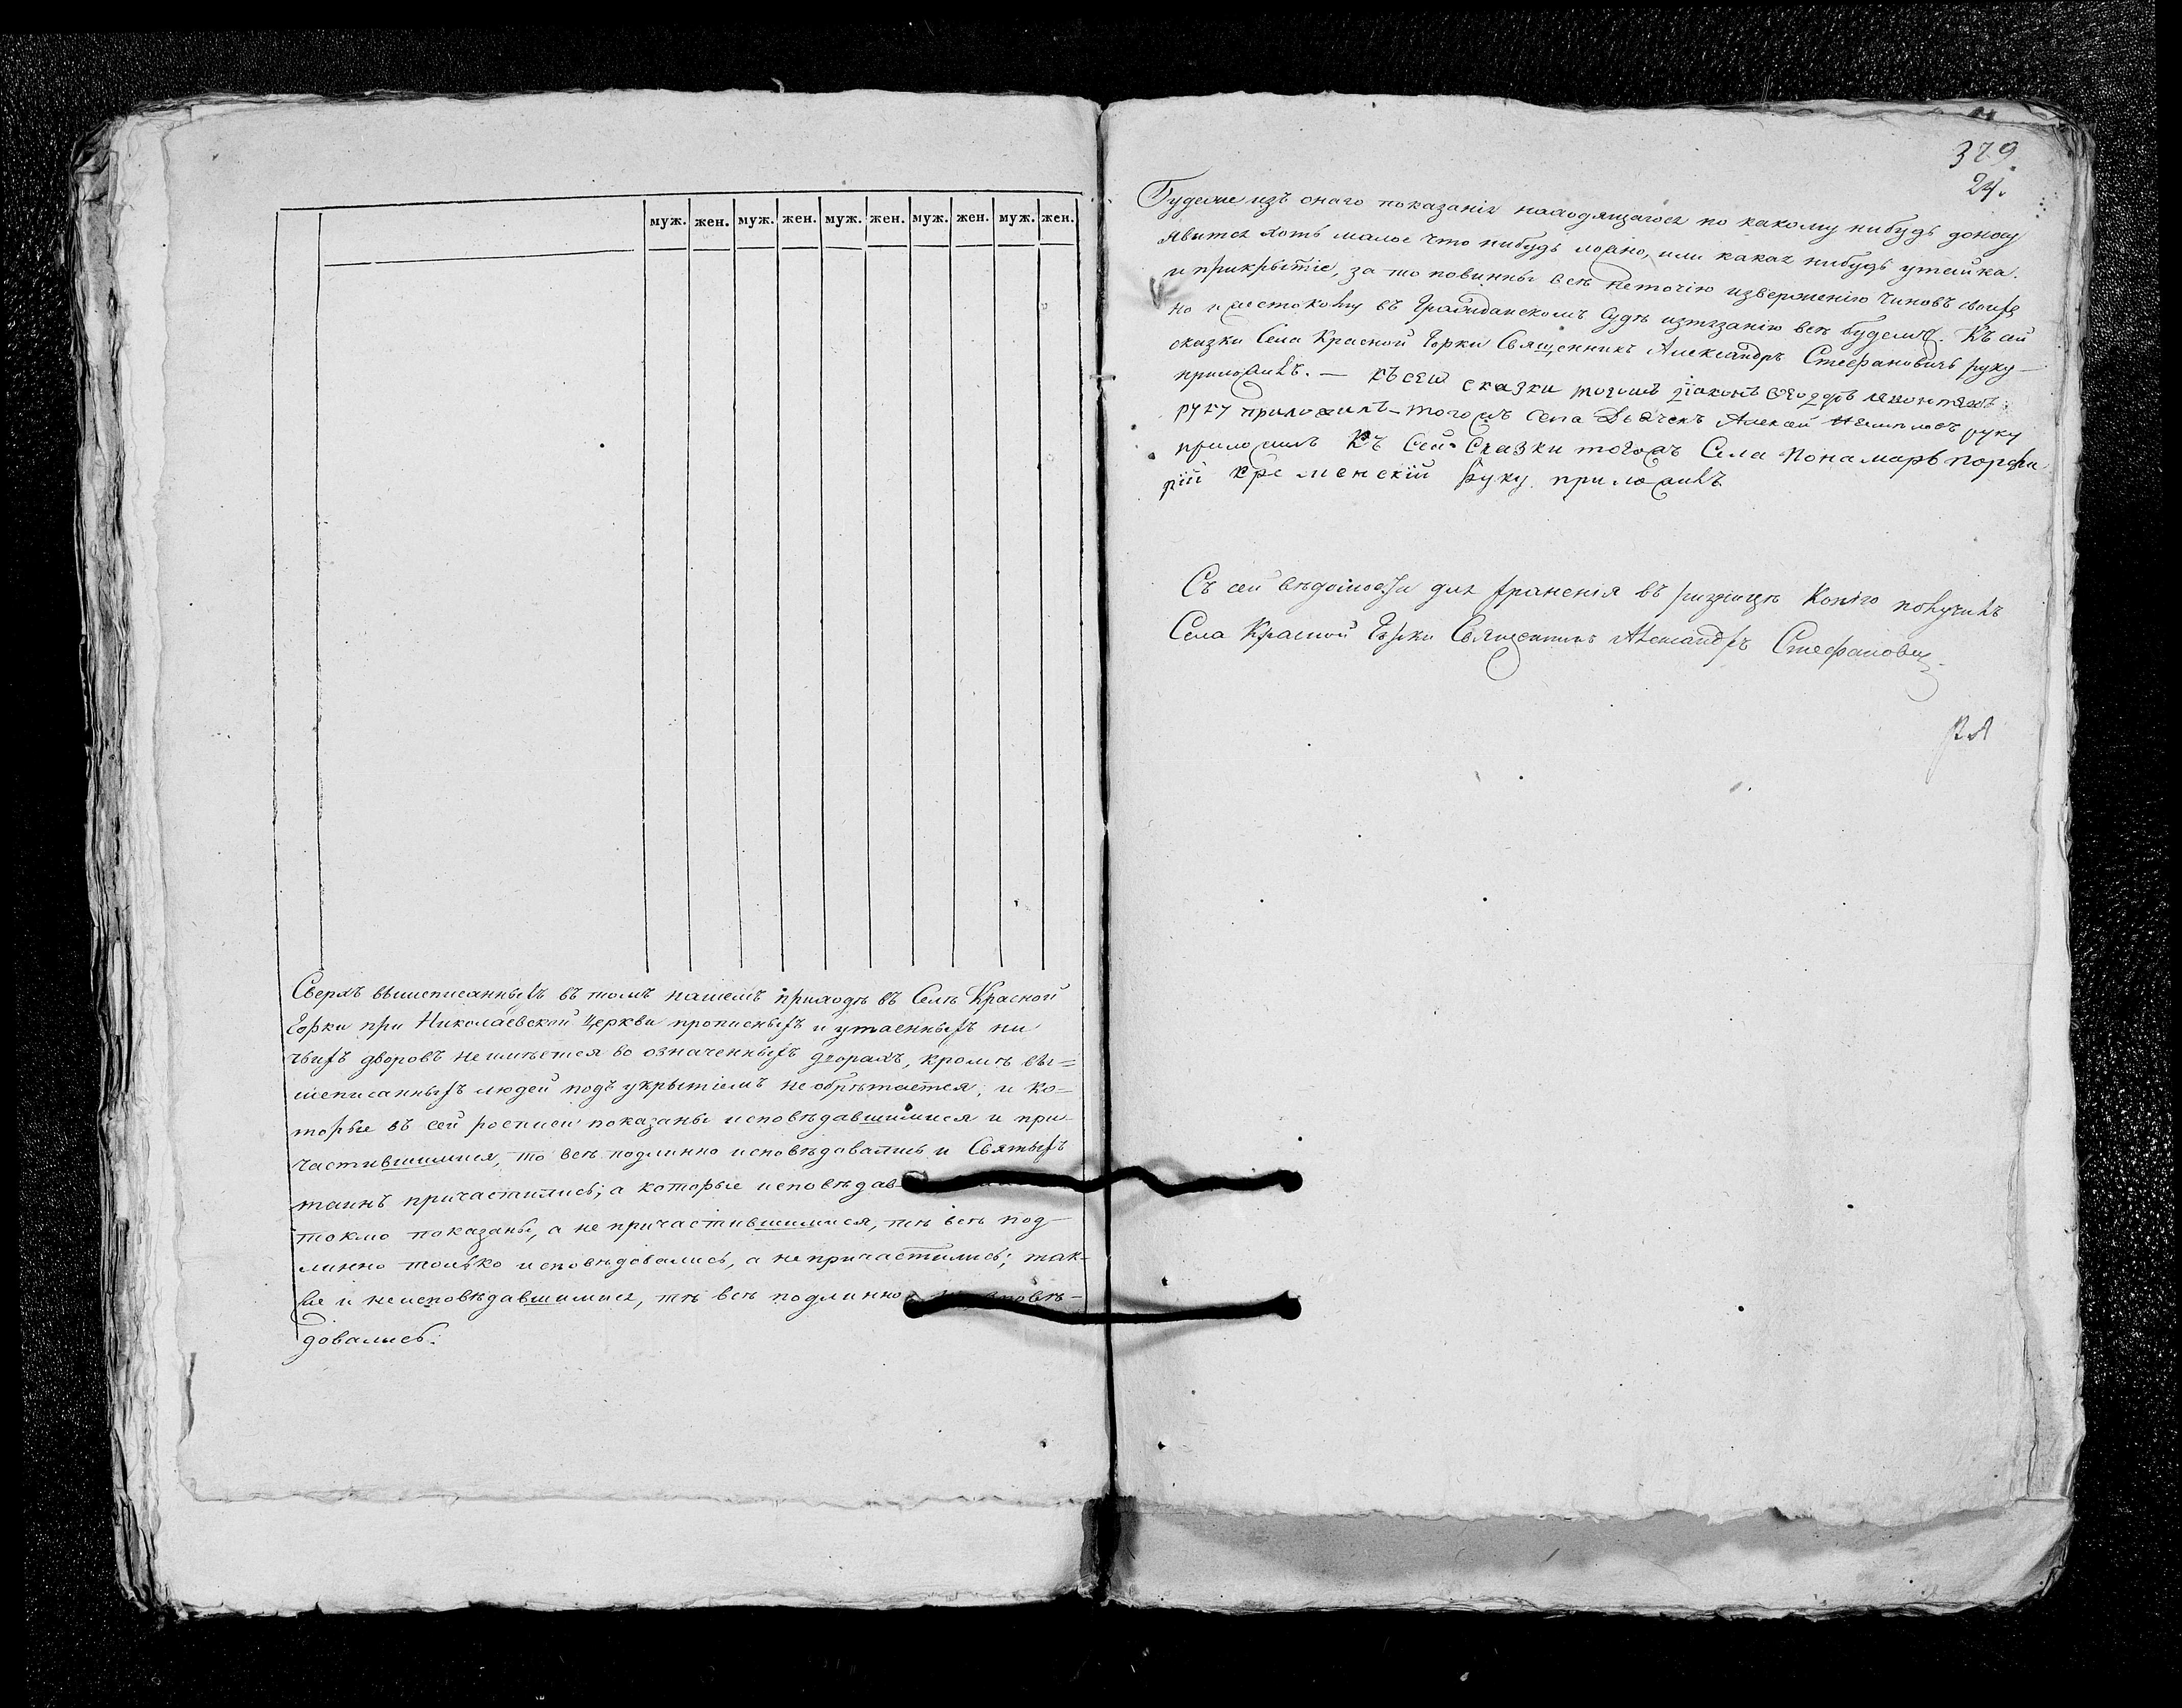 муж. жен. муж. жен. муж. жен. муж. жен. муж. жен.
Сверхъ вышеписанныхъ въ томъ нашемъ приходѣ въ Селѣ Красной
Горки при Николаевской Церкви прописныхъ и утаенныхъ ни
чьихъ дворовъ неимѣется во означенныхъ дворахъ, кромѣ вы=
шеписанныхъ людей подъ укрытіемъ не обрѣтается; и ко=
торые въ сей росписи показаны исповѣдавшимися и при-
частившимися, то всѣ подлинно исповѣдавались и Святыхъ
таинъ причастились; а которые исповѣдав
токмо показаны, а не причастившимися, тѣ всѣ под-
линно только исповѣдовались, а не причастились; так-
же и неисповѣдавшимися, тѣ всѣ подлинно
довались.
379.
24.
Будеже изъ онаго показанія находящагося по какому нибудь доносу
явится хоть малое что нибудь ложно, или какая нибудь утайка
и прикрытіе, за то повинны всѣ неточію изверженію чиновъ своихъ
но и жестокому въ Гражданскомъ Судѣ изтязанію всѣ будемъ. Къ сей
сказки Села Красной Горки Священникъ Александръ Стефановичь руку
приложилъ. — къ сеи сказки тогожъ діаконъ
руку приложилъ – тогожъ села Дьячекъ Алексей руку
приложилъ Къ Сей Сказки тогожъ Села Понамарь Порфи
рій Кременскій руку приложилъ
Съ сей вѣдомости для храненія въ ризницѣ Копію получилъ
Села Красной Горки Священникъ Александръ Стефановичь